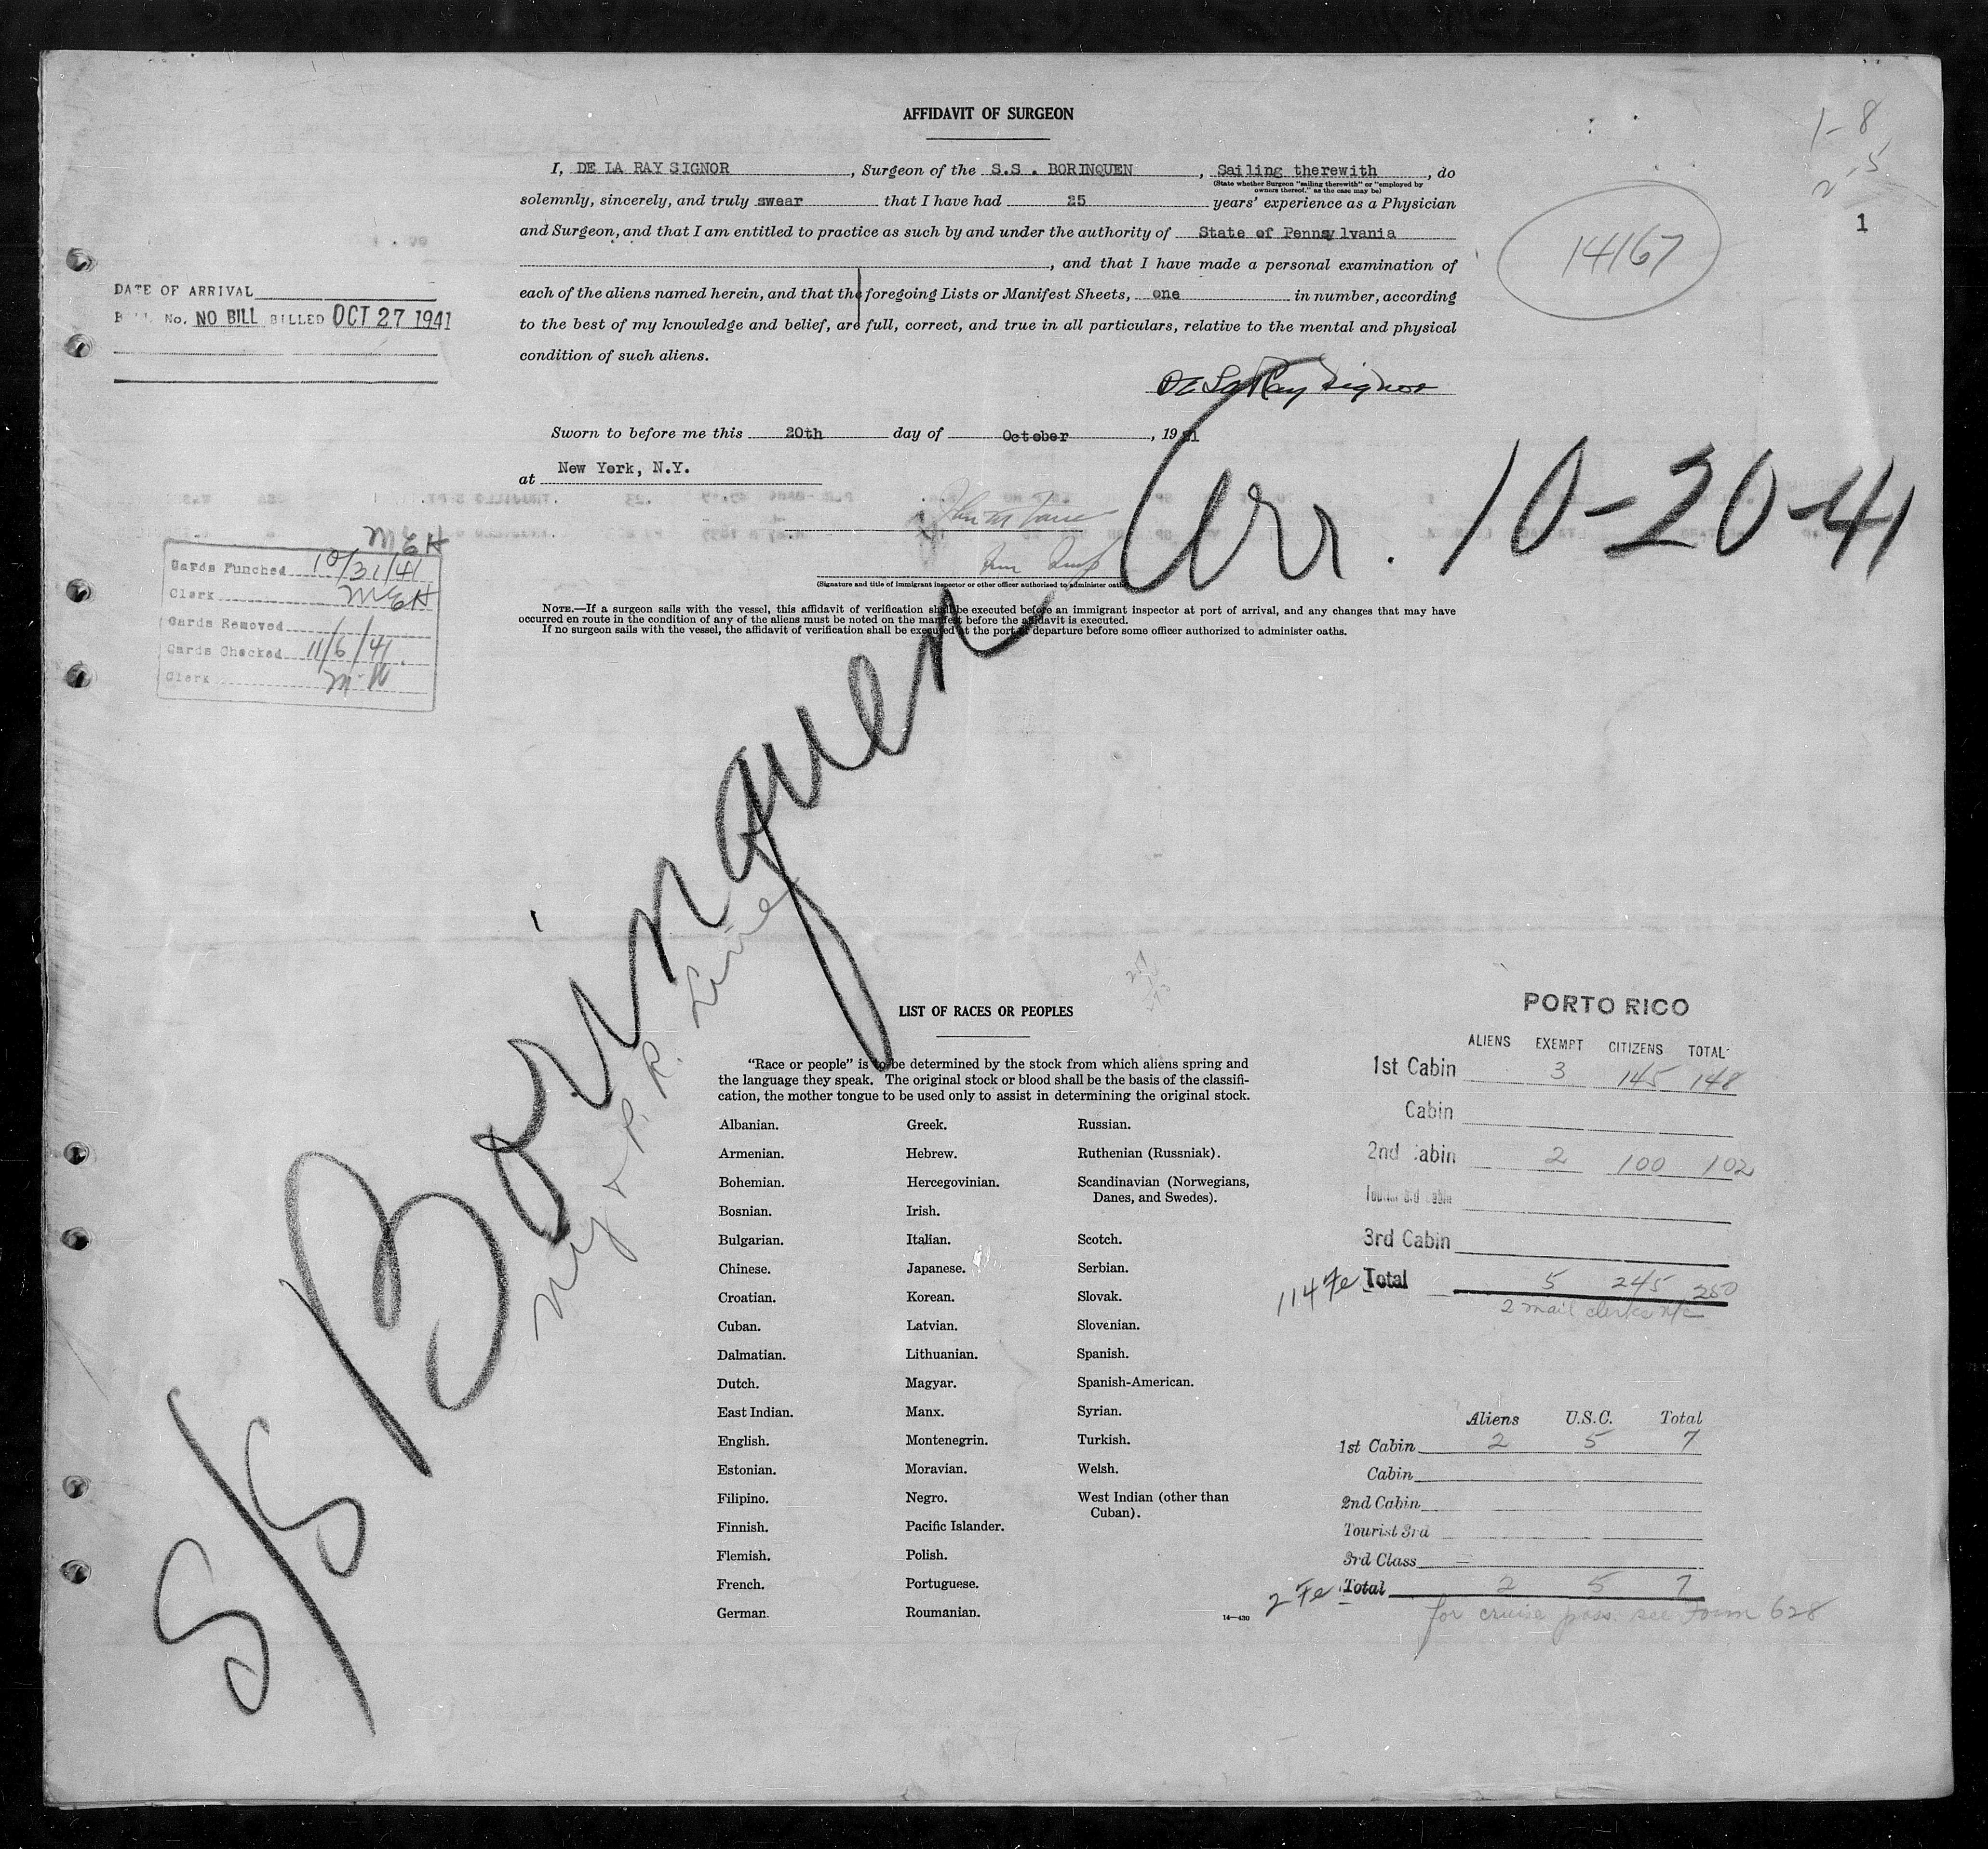 AFFIDAVIT OF SURGEON
1-8
2-5
1
14167
I, DE LA RAY SIGNOR, Surgeon of the S.S. BORINQUEN, Sailing therewith, do
(State whether Surgeon "sailing therewith" or "employed by
owners thereof," as the case may be)
solemnly, sincerely, and truly swear that I have had 25 years' experience as a Physician
and Surgeon, and that I am entitled to practice as such by and under the authority of State of Pennsylvania
, and that I have made a personal examination of
each of the aliens named herein, and that the foregoing Lists or Manifest Sheets, one in number, according
to the best of my knowledge and belief, are full, correct, and true in all particulars, relative to the mental and physical
condition of such aliens.
De La Ray Signor
Sworn to before me this 20th day of October, 1941
at New York, N.Y.
(Signature and title of immigrant inspector or other officer authorized to administer oaths)
NOTE.—If a surgeon sails with the vessel, this affidavit of verification shall be executed before an immigrant inspector at port of arrival, and any changes that may have
occurred en route in the condition of any of the aliens must be noted on the manifest before the affidavit is executed.
If no surgeon sails with the vessel, the affidavit of verification shall be executed at the port of departure before some officer authorized to administer oaths.
DATE OF ARRIVAL
BILL No. NO BILL BILLED OCT 27 1941
MEH
Cards Punched 10/31/41
Clerk MEH
Cards Removed
Cards Checked 11/6/41.
Clerk M-W
S/S Borinquen Arr. 10-20-41
NY & P. R. Line
LIST OF RACES OR PEOPLES
"Race or people" is to be determined by the stock from which aliens spring and
the language they speak. The original stock or blood shall be the basis of the classifi-
cation, the mother tongue to be used only to assist in determining the original stock.
Albanian.
Armenian.
Bohemian.
Bosnian.
Bulgarian.
Chinese.
Croatian.
Cuban.
Dalmatian.
Dutch.
East Indian.
English.
Estonian.
Filipino.
Finnish.
Flemish.
French.
German.
Greek.
Hebrew.
Hercegovinian.
Irish.
Italian.
Japanese.
Korean.
Latvian.
Lithuanian.
Magyar.
Manx.
Montenegrin.
Moravian.
Negro.
Pacific Islander.
Polish.
Portuguese.
Roumanian.
Russian.
Ruthenian (Russniak).
Scandinavian (Norwegians,
Danes, and Swedes).
Scotch.
Serbian.
Slovak.
Slovenian.
Spanish.
Spanish-American.
Syrian.
Turkish.
Welsh.
West Indian (other than
Cuban).
14—430
PORTO RICO
ALIENS EXEMPT CITIZENS TOTAL
1st Cabin 3 145 148
Cabin
2nd Cabin 2 100 102
Tourist 3rd Cabin
3rd Cabin
114 Fe Total 5 245 250
2 mail clerks n/c
Aliens U.S.C. Total
1st Cabin 2 5 7
Cabin
2nd Cabin
Tourist 3rd
3rd Class
2 Fe Total 2 5 7
for cruise pass. see Form 628